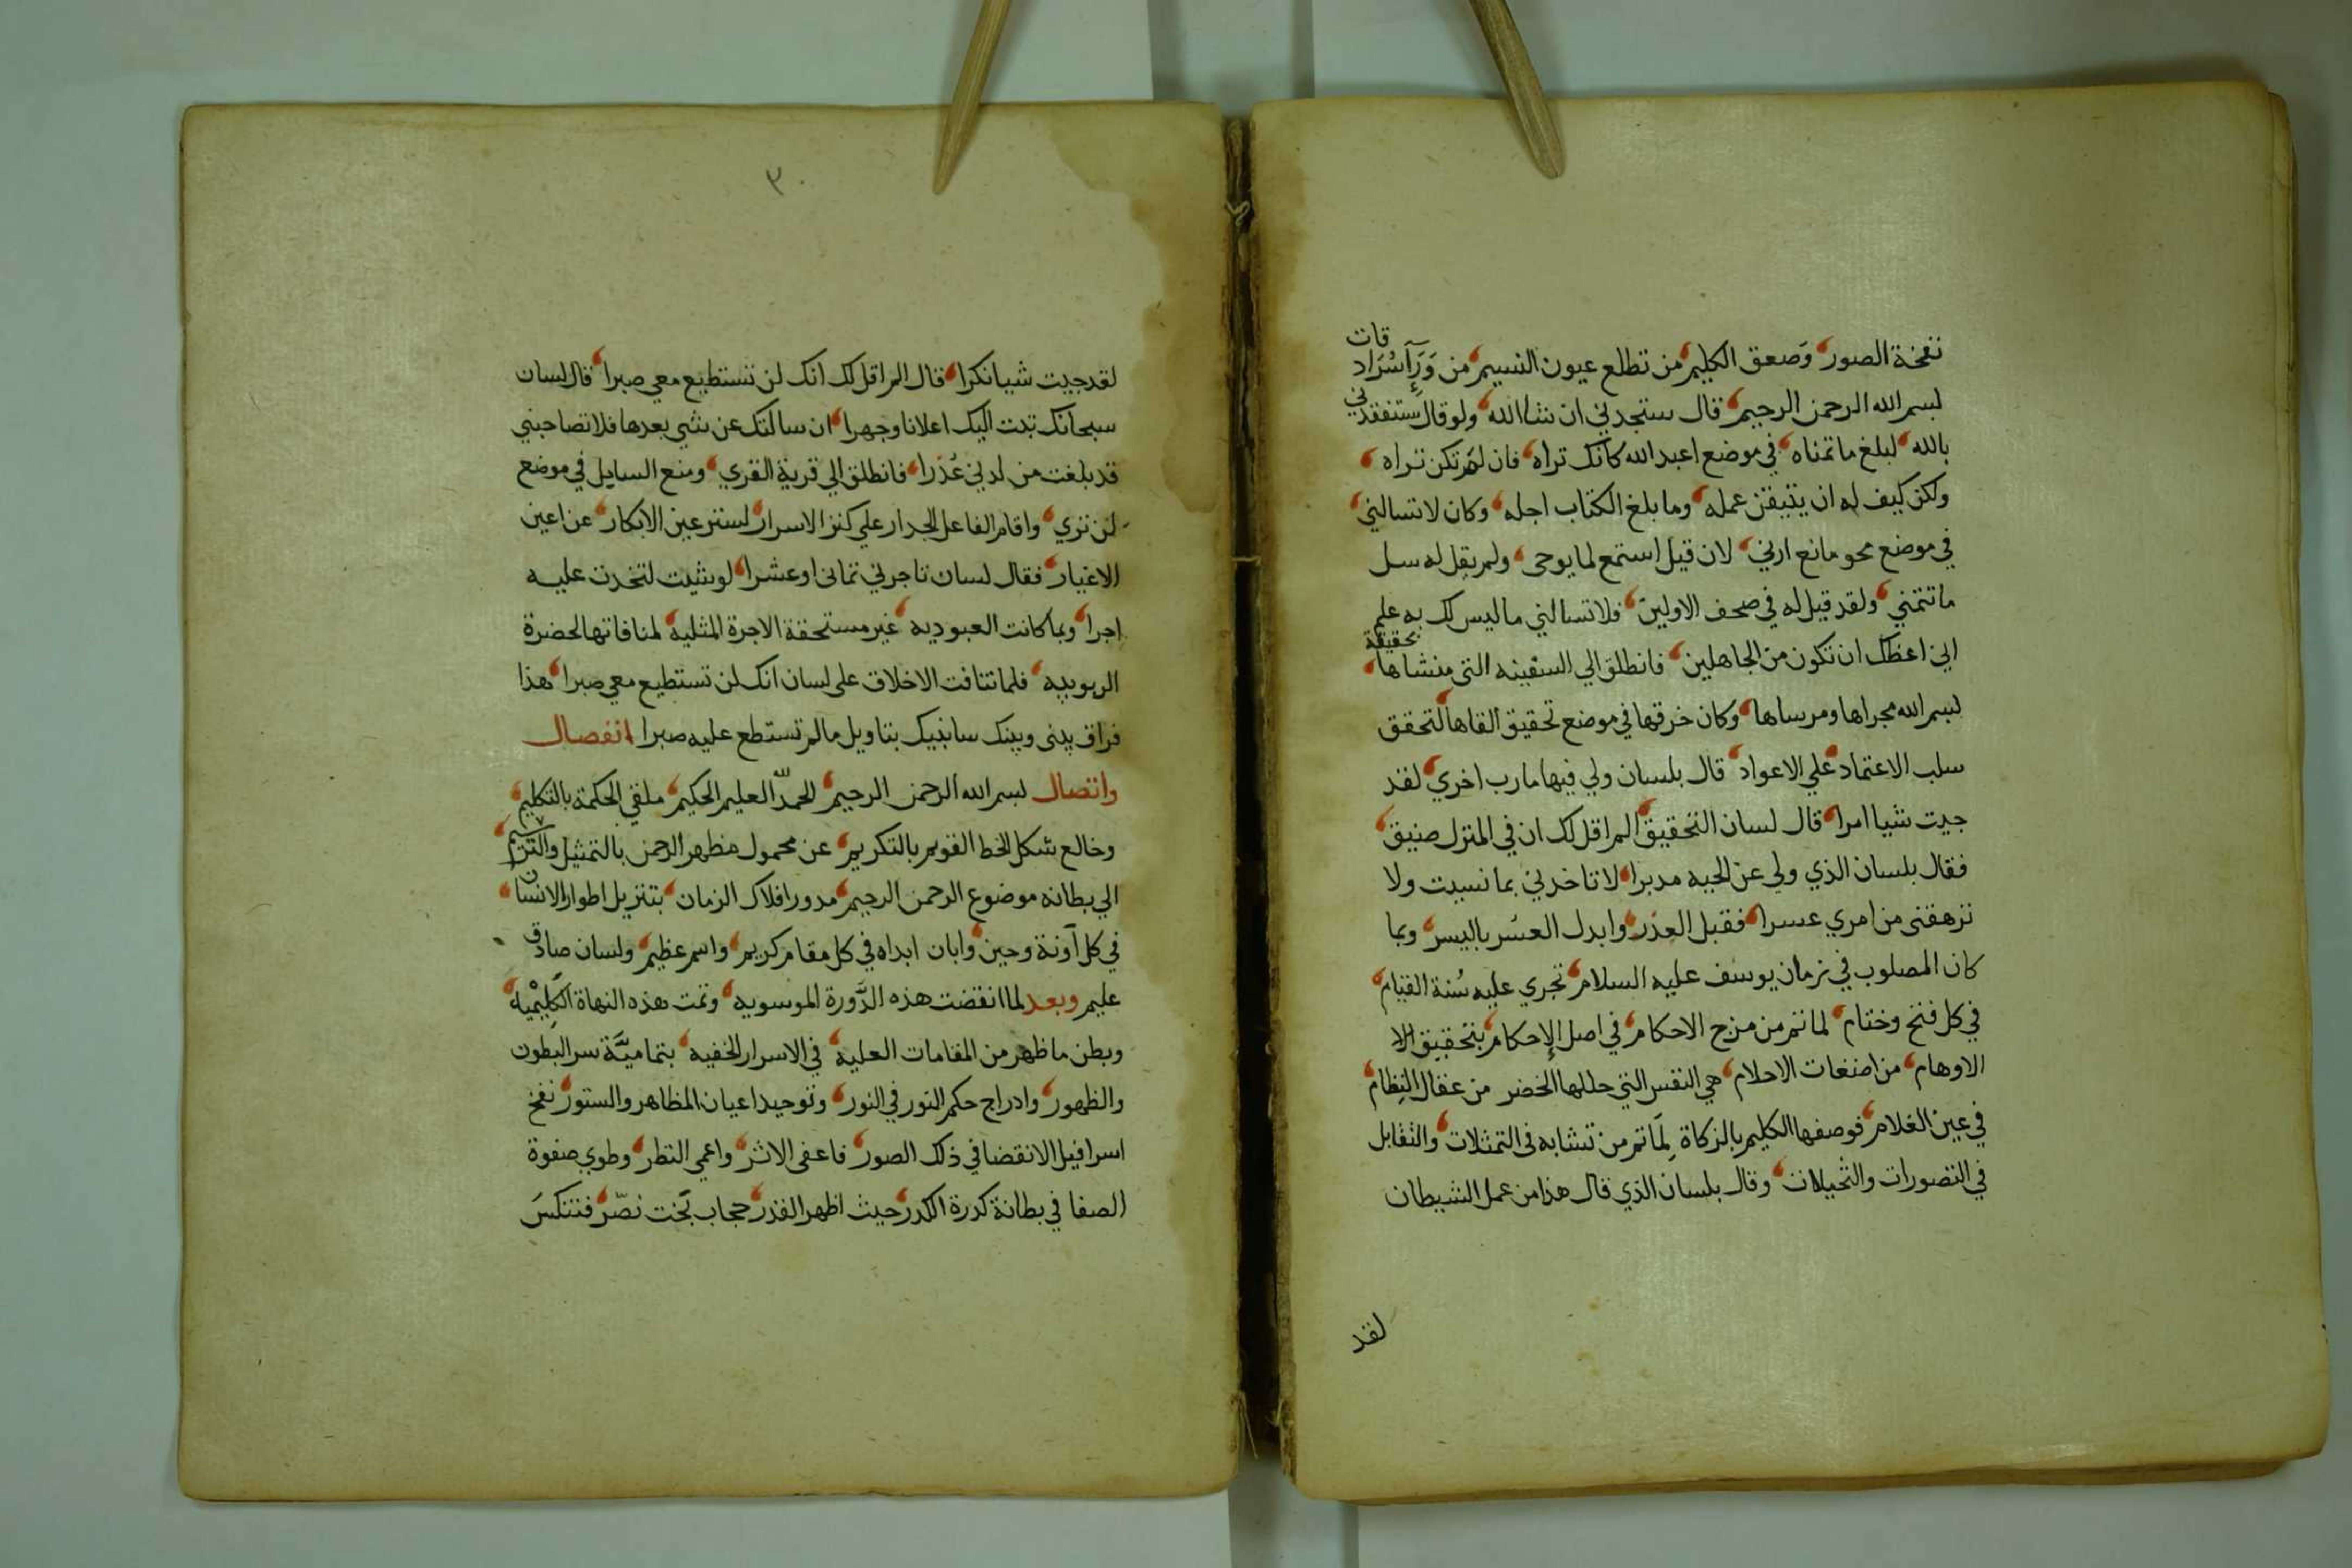 نفخة الصور وَصعق الكليم من تطلع عيون النسيم من وَرَآء سُرَادقات
بسم الله الرحمن الرحيم قال ستجدني ان شا الله ولو قال ستفقدني
بالله لبلغ ما تمناه في موضع اعبد الله كانك تراه فان لم تكن تراه
ولكن كيف له ان يتيقن عمله وما بلغ الكتاب اجله وكان لا تسالني
في موضع محو مانع ارني لان قيل استمع لما يوحى ولم يقل له سل
ما تتمني ولقد قيل له في صحف الاولين فلا تسالني ما ليس لك به علم
اني اعظك ان تكون من الجاهلين فانطلق الي السفينه التى منشاها حقيقة
بسم الله مجراها ومرساها وكان خرقها في موضع تحقيق القاها لتحقق
سلب الاعتماد علي الاعواد قال بلسان ولي فيها مارب اخري لقد
جيت شيا امرا قال لسان التحقيق الم اقل لك ان في المنزل ضيق
فقال بلسان الذي ولى عن الحيه مدبرا لا تاخدني بما نسيت ولا
ترهقنى من امري عسرا فقبل العذر وابدل العسر باليسر وبما
كان المصلوب في زمان يوسف عليه السلام تجري عليه سُنة القيام
في كل فتح وختام لما تم من مزج الاحكام في اصل الإحكام بتحقيق الا
الاوهام من اضغات الاحلام هي النفس التي حللها الخضر من عقال النِظام
في عين الغلام فوصفها الكليم بالزكاة لِمَا تم من تشابه فى التمثلات والتقابل
في التصورات والتخيلات وقال بلسان الذي قال هذا من عمل الشيطان
لقد
٣٠
لقد جيت شيا نكرا قال الم اقل لك انك لن تستطيع معي صبرا قال لسان
سبحانك تبت اليك اعلانا وجهرا ان سالتك عن شي بعدها فلا تصاحبني
قد بلغت من لدني عُذرا فانطلق الي قرية القري ومنع السايل في موضع
لن تري واقام الفاعل الجدار علي كنز الاسرار لستر عين الابكار عن اعين
الاغيار فقال لسان تاجرني تمانى او عشرا لو شيت لتخدت عليه
اجرا وبما كانت العبوديه غير مستحقة الاجرة المثليه لمنافاتها لحضرة
الربوبيه فلما تنافت الاخلاق على لسان انك لن تستطيع معي صبرا هذا
فراق بينى وبينك سانبيك بتاويل مالم تستطع عليه صبرا انفصال
واتصال بسم الله الرحمن الرحيم الحمد لله العليم الحكيم ملقي الحكمة بالتكليم
وخالع شكل الخط القويم بالتكريم عن محمول مظهر الرحمن بالتمثيل والترسيم
الي بطانه موضوع الرحمن الرحيم مدور افلاك الزمان بتنزيل اطوار الانسان
في كل آونة وحين وابان ابداه في كل مقام كريم واسم عظيم ولسان صادق
عليم وبعد لما انقضت هذه الدَّورة الموسويه وتمت هذه النهاة الكَلِيْميه
وبطن ما ظهر من المقامات العليه في الاسرار الخفيه بتماميَّة سر البطون
والظهور وادراج حكم النور في النور وتوحيد اعيان المظاهر والستور نفخ
اسرافيل الانقضا في ذلك الصور فاعفى الاثر واعمي النظر وطوي صفوة
الصفا في بطانة كدرة الكدر حيث اظهر القدر حجاب بُخت نصّر فتنكسَ